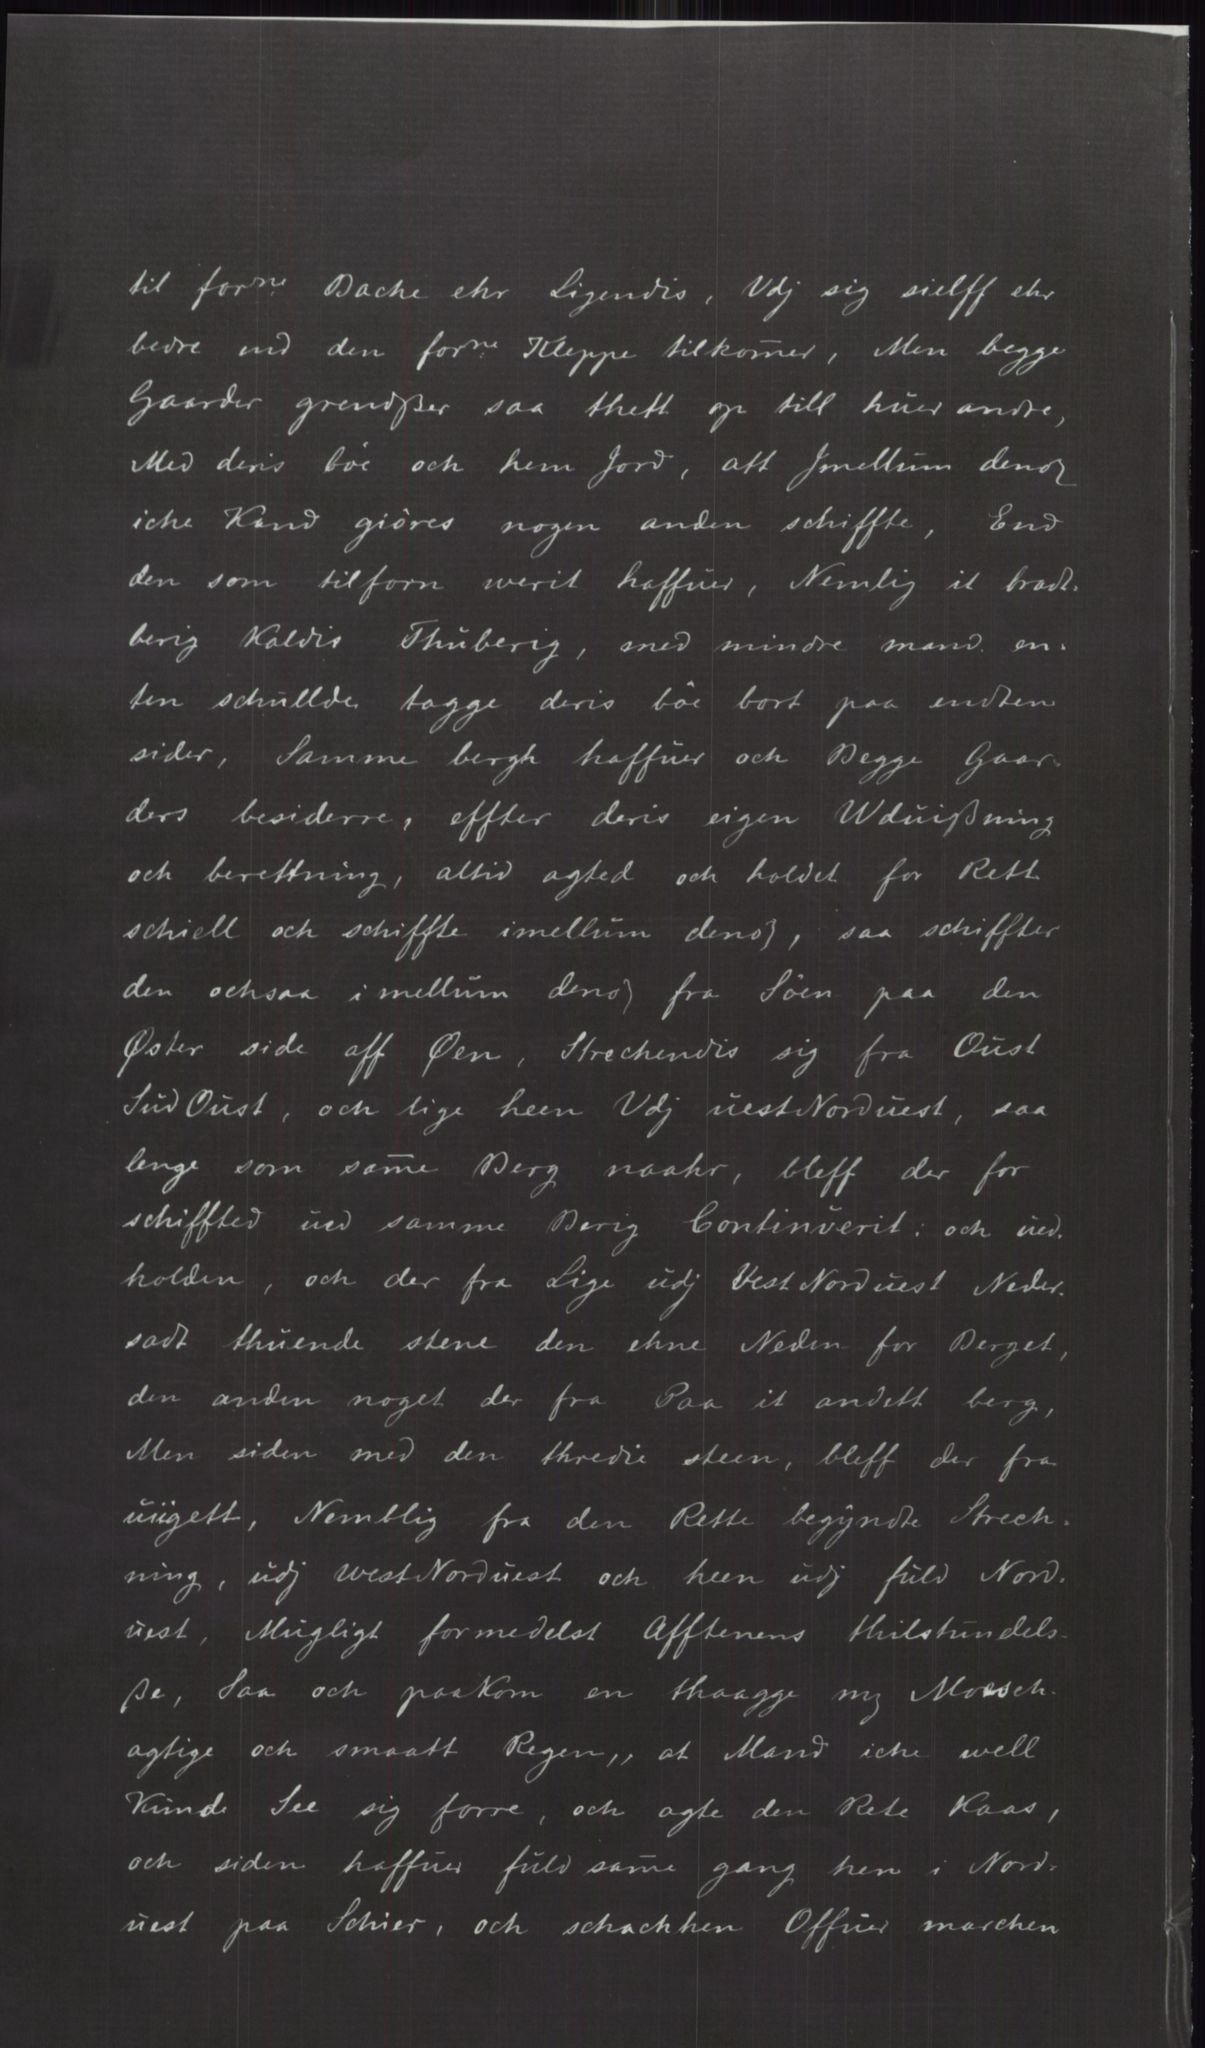 til forne Bache ehr Ligendis, Vdj sig sielff ehr
bedre end den forne Kleppe tilkom̄er, Men begge
Gaarder grendßer saa thett op till huer andre,
Med deris böe och hem Jord, att Jmellum denoͤ
iche Kand giöres nogen anden schiffte, End
den som tilforn werit haffuer, Nemlig it bradt-
berig Kaldis Thuberig, med mindre mand en-
ten schullde tagge deris böe bort paa endten
sider, Samme bergh haffuer och Begge Gaar-
ders besiderre, effter deris eigen Wduißning
och berettning, altid agted och holdet for Rett
schiell och schiffte imellum deno, saa schiffter
den ochsaa imellum deno fra Söen paa den
Øster side aff Øen, Strechendis sig fra Oust
Sud Oust, och lige heen Vdj uestNorduest, saa
lenge som sam̄e Berg naahr, bleff der for
schiffted ued samme Berig Continuerit: och ued-
holden, och der fra Lige udj VestNorduest Neder-
sadt thuende stene den ehne Neden for Berget,
den anden noget der fra Paa it andett berg,
Men siden med den thredie steen, bleff der fra
uiigett, Nemblig fra den Rette begyndte Strech-
ning, udj westNorduest och heen udj fuld Nord-
uest, Mugligt formedelst Afftenens thilstundels-
ße, Saa och paakom en thaagge mz Moesch-
agtige och smaatt Regen,, at Mand iche well
Kunde See sig forre, och agte den Rete Kaas,
och siden haffuer fuld sam̄e gang hen i Nord-
uest paa Schier, och schachhen Offuer marchen